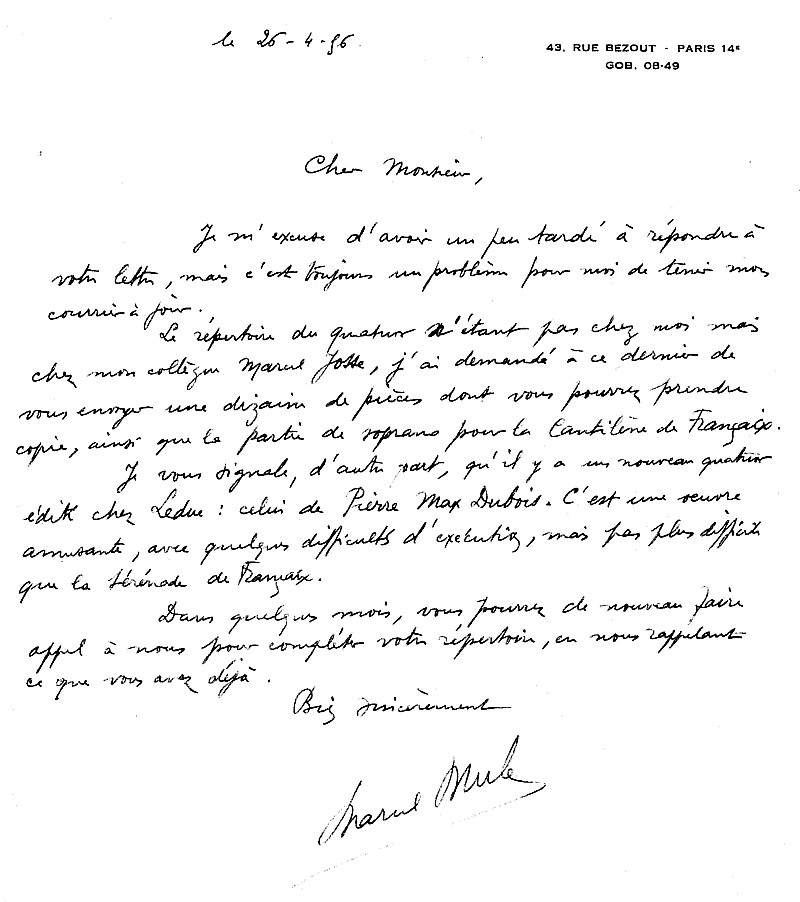 le 26-4-56.
43, RUE BEZOUT - PARIS 14e
GOB. 08-49
Cher Monsieur,
Je m'excuse d'avoir un peu tardé à répondre à
votre lettre, mais c'est toujours un problème pour moi de tenir mon
courrier à jour.
Le répertoire du quatuor n'étant pas chez moi mais
chez mon collègue Marcel Josse, j'ai demandé à ce dernier de
vous envoyer une dizaine de pièces dont vous pourrez prendre
copie, ainsi que la partie de soprano pour la Cantilène de Françaix.
Je vous signale, d'autre part, qu'il y a un nouveau quatuor
édité chez Leduc : celui de Pierre Max Dubois. C'est une oeuvre
amusante, avec quelques difficultés d'exécution, mais pas plus difficile
que la Sérénade de Françaix.
Dans quelques mois, vous pourrez de nouveau faire
appel à nous pour compléter votre répertoire, en nous rappelant
ce que vous avez déjà.
Bien sincèrement
Marcel Mule